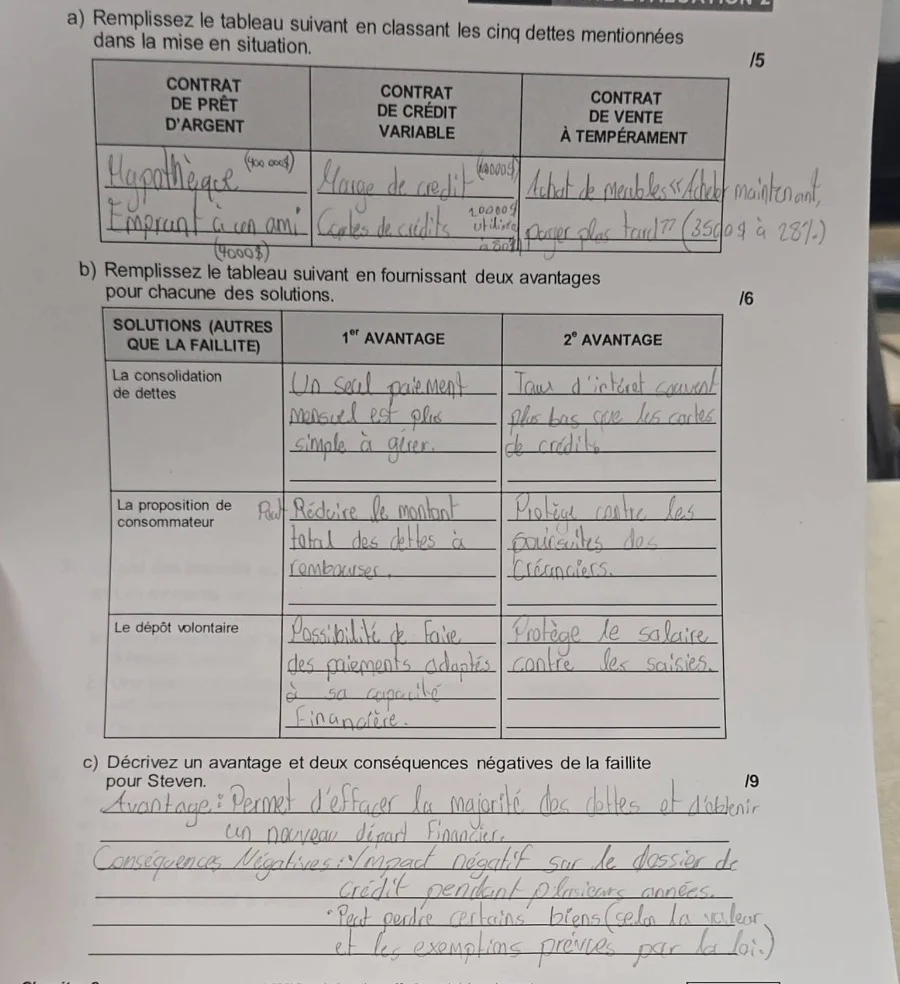 a) Remplissez le tableau suivant en classant les cinq dettes mentionnées
dans la mise en situation.
/5
CONTRAT
DE PRÊT
D'ARGENT
CONTRAT
DE CRÉDIT
VARIABLE
CONTRAT
DE VENTE
À TEMPÉRAMENT
Hypothèque (400 000$)
Emprunt à un ami
(4000$)
Marge de crédit
Cartes de crédits
10000$
utilisé
à 80%
Achat de meubles «Acheter maintenant,
payer plus tard» (3500$ à 28%)
b) Remplissez le tableau suivant en fournissant deux avantages
pour chacune des solutions.
/6
SOLUTIONS (AUTRES
QUE LA FAILLITE)
1er AVANTAGE
2e AVANTAGE
La consolidation
de dettes
Un seul paiement
mensuel est plus
simple à gérer.
Taux d'intéret souvent
plus bas que les cartes
de crédits
La proposition de
consommateur
Peut Réduire le montant
total des dettes à
rembourser.
Protège contre les
poursuites des
Créanciers.
Le dépôt volontaire
Possibilité de faire
des paiements adaptés
à sa capacité
Financière.
Protège le salaire
contre les saisies.
c) Décrivez un avantage et deux conséquences négatives de la faillite
pour Steven.
/9
Avantage: Permet d'effacer la majorité des dettes et d'obtenir
un nouveau départ Financier.
Conséquences Négatives: Impact négatif sur le dossier de
crédit pendant plusieurs années.
• Peut perdre certains biens (selon la valeur
et les exemptions prévues par la loi.)